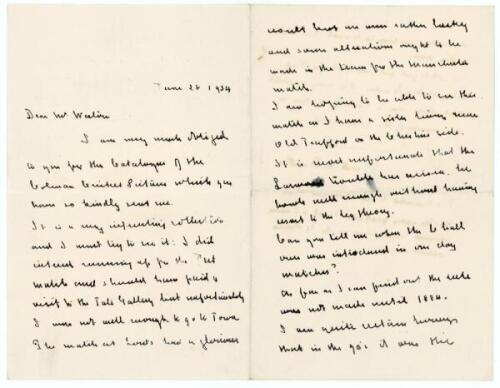 June 28 1934
Dear Mr Weston
I am very much obliged
to you for the Catalogue of the
Colman Cricket Pictures which you
have so kindly sent me.
It is a very interesting collection
and I must try to see it: I did
intend running up for the Test
match and should have paid a
visit to the Tate Gallery but unfortunately
I was not well enough to go to Town
The match at Lords had a glorious
result but we were rather lucky
and some alterations ought to be
made in the team for the Manchester
match.
I am hoping to be able to see this
match as I have a sister living near
Old Trafford on the Cheshire side.
It is most unfortunate that the
Larwood trouble has arisen. He
bowls well enough without having
resort to the leg theory.
Can you tell me when the 6 ball
over was introduced in one day
matches?
As far as I can find out the rule
was not made until 1884.
I am quite certain however
that in the 70's it was the